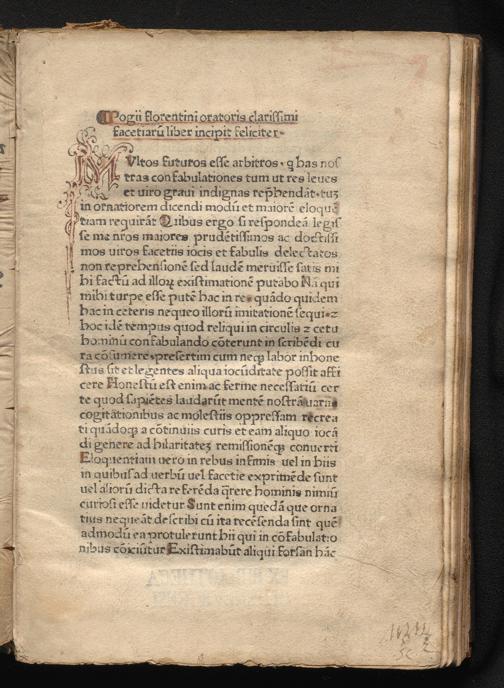 Pogii florentini oratoris clarissimi
facetiarū liber incipit feliciter.
MVltos futuros esse arbitros . q has nos
tras confabulationes tum ut res leues
et uiro graui indignas rephendāt . tuꝫ
in ornatiorem dicendi modū et maiorē eloquē
tiam requirāt Quibus ergo si respondeā legis
se me nros maiores prudētissimos ac doctissi
mos uiros facetiis iocis et fabulis delectatos
non reprehensionē sed laudē meruisse satis mi
hi factū ad illoꝝ existimationē putabo Nā qui
mihi turpe esse putē hac in re . quādo quidem
hac in ceteris nequeo illorū imitationē sequi . ⁊
hoc idē tempus quod reliqui in circulis ⁊ cetu
hominū confabulando cōterunt in scribēdi cu
ra cōsumere . presertim cum neqꝫ labor inhone
stus sit et legentes aliqua iocūditate possit affi
cere Honestū est enim ac ferme necessariū cer
te quod sapiētes laudarūt mentē nostrā uariis
cogitationibus ac molestiis oppressam recrea
ri quādoqꝫ a cōtinuiis curis et eam aliquo iocā
di genere ad hilaritateꝫ remissionēqꝫ conuerti
Eloquentiam uero in rebus infimis uel in hiis
in quibus ad uerbū uel facetie exprimēde sunt
uel aliorū dicta referēda q̄rere hominis nimiū
curiosi esse uidetur Sunt enim quedā que orna
tius nequeāt describi cū ita recēsenda sint quē
admodū ea protulerunt hii qui in cōfabulatio
nibus cōiciūtur Existimabūt aliqui forsan hāc